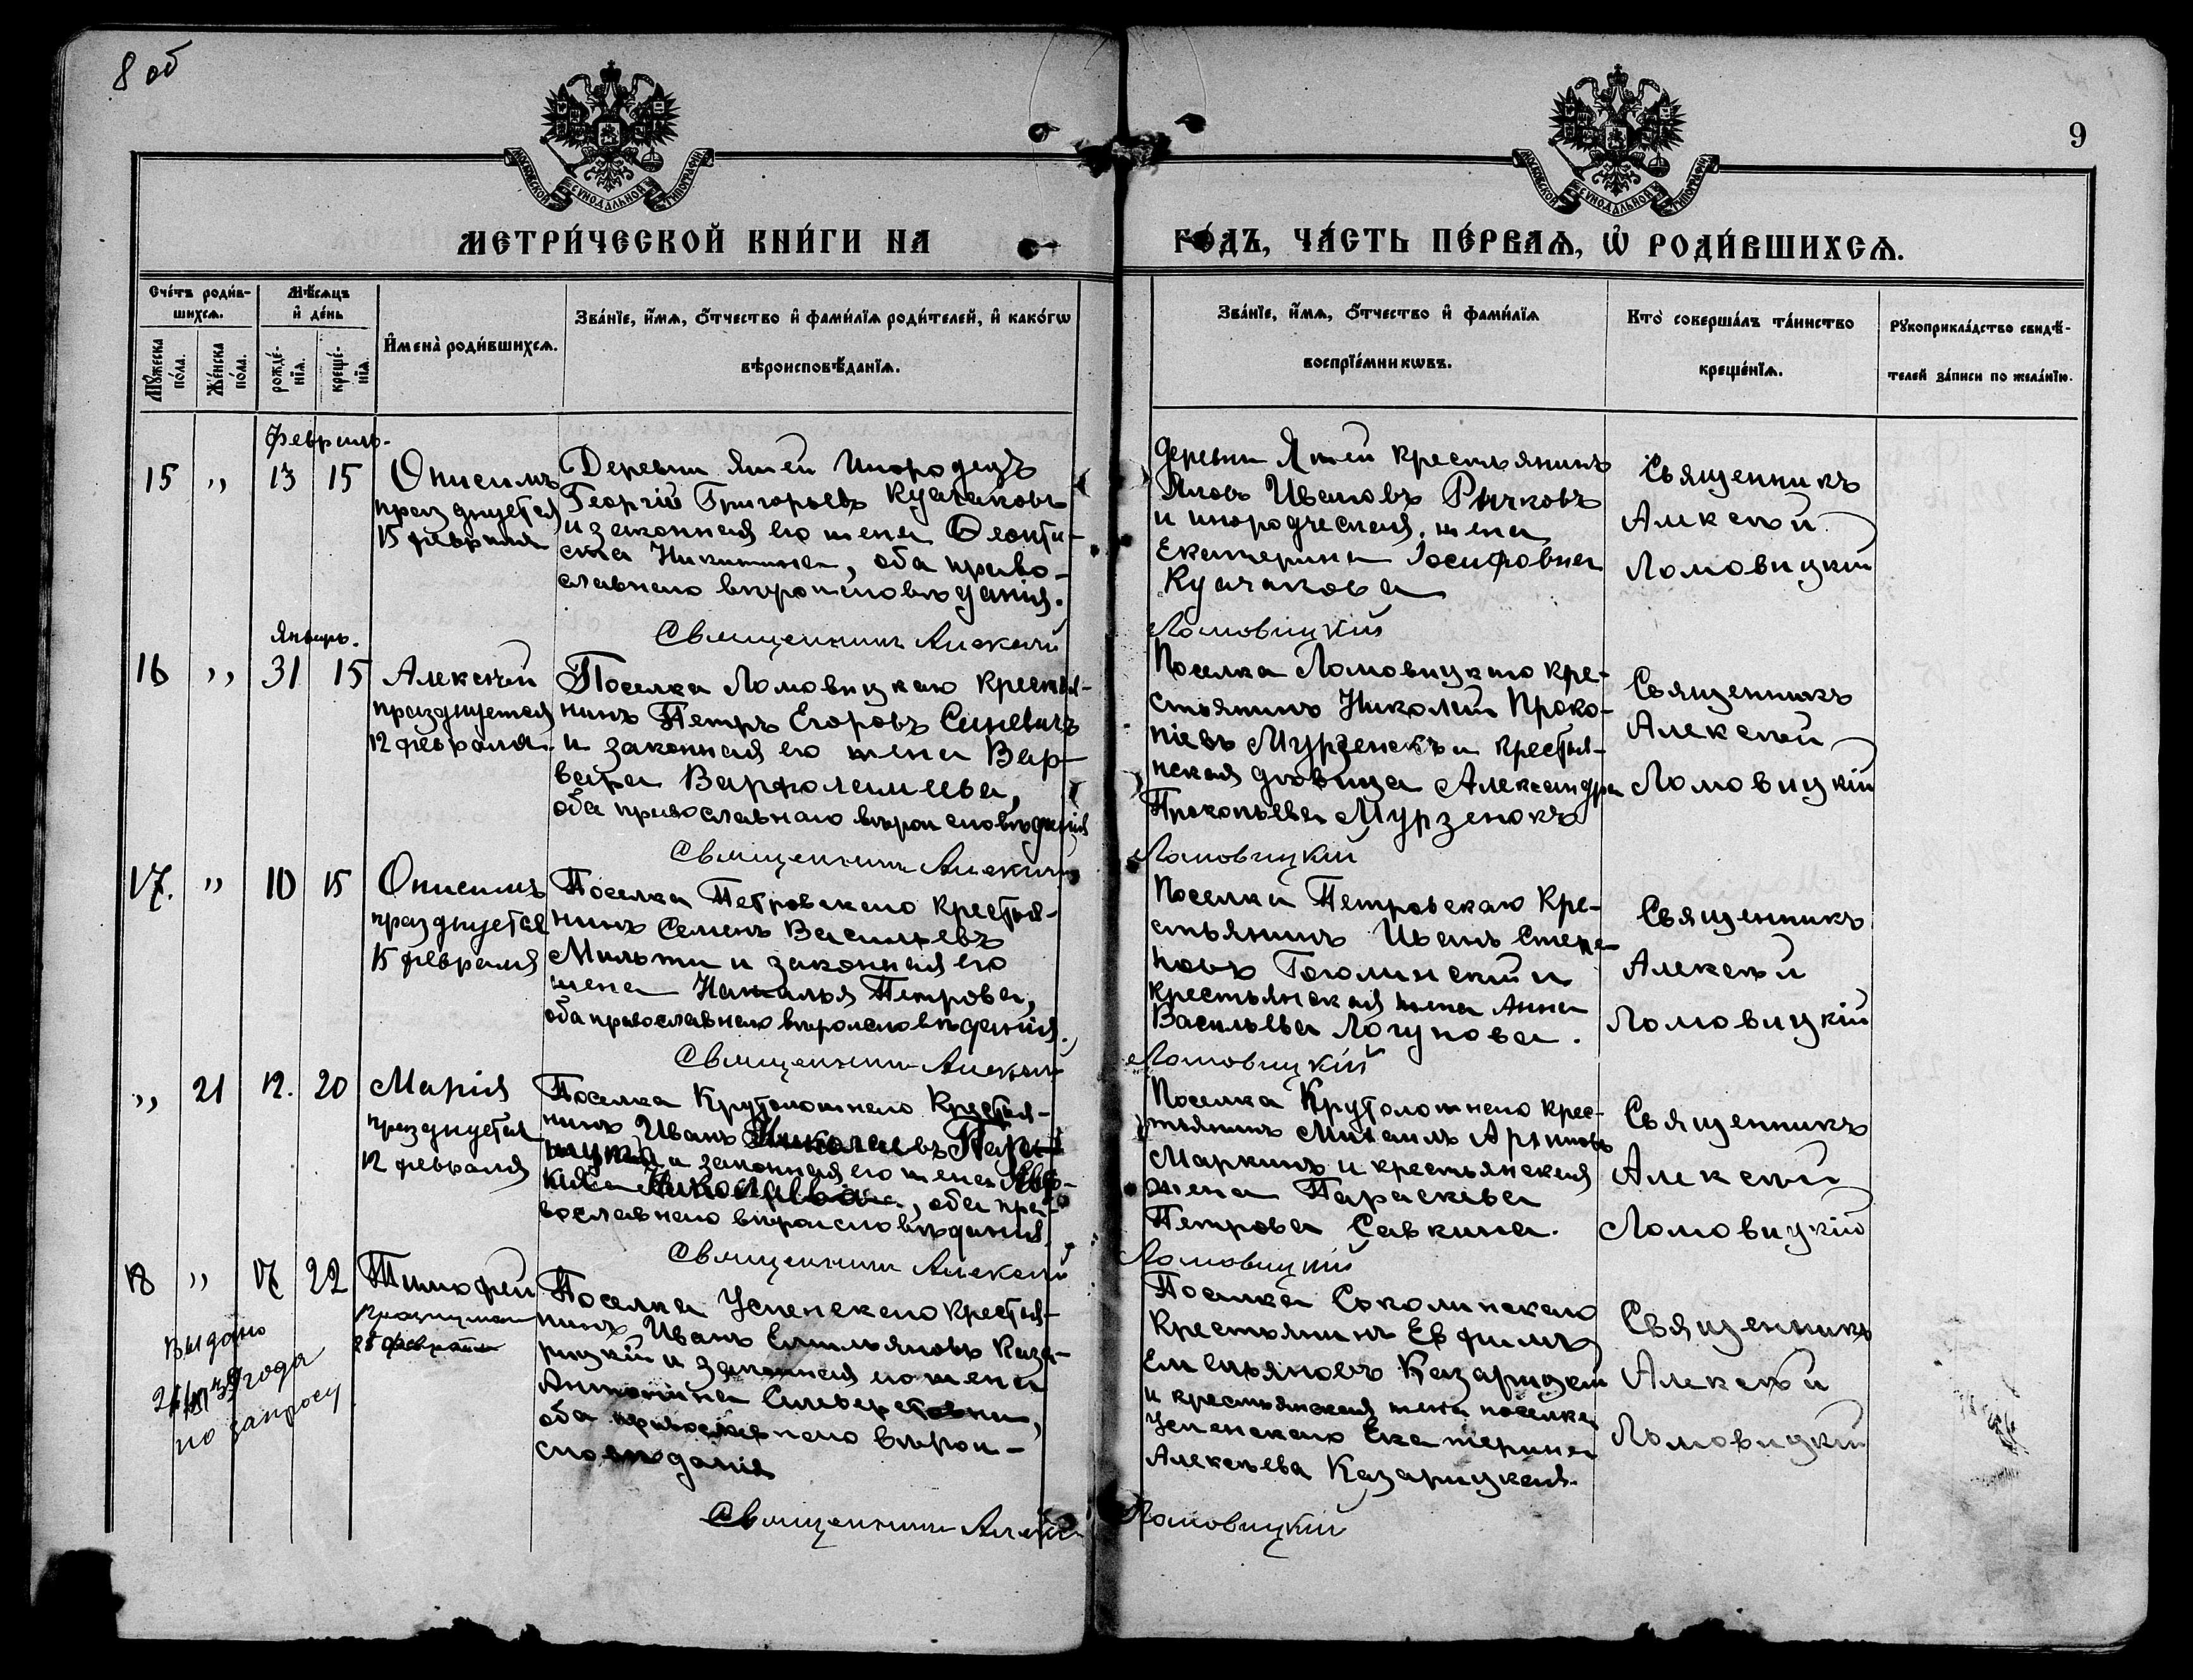 8 об
9
МОСКОВСКОЙ СѴНОДАЛЬНОЙ ТИПОГРАФІИ
МОСКОВСКОЙ СѴНОДАЛЬНОЙ ТИПОГРАФІИ
МЕТРИ́ЧЕСКОЙ КНИ́ГИ НА
ГО́ДЪ, ЧА́СТЬ ПЕ́РВАѦ, Ѡ҆ РОДИ́ВШИХСѦ.
Сче́тъ роди́в-
шихсѧ.
Мꙋ́жеска по́ла.
Же́нска по́ла.
Мѣ́сѧцъ
и҆ де́нь
рожде́-
нїѧ.
креще́-
нїѧ.
И҆мена̀ роди́вшихсѧ.
Зва́нїе, и҆́мѧ, ѻ҆́тчество и҆ фами́лїѧ роди́телей, и҆ како́гѡ
вѣроисповѣ́данїѧ.
Зва́нїе, и҆́мѧ, ѻ҆́тчество и҆ фами́лїѧ
воспрїе́мникѡвъ.
Кто̀ соверша́лъ та́инство
креще́нїѧ.
Рꙋкоприкла́дство свидѣ́-
телей за́писи по жела́нїю.
Февраль.
15 ,, 13 15
Онисимъ
празднуется
15 февраля
Деревни Яшеи Инородецъ
Георгій Григорьевъ Кусаковъ
и законная его жена Феокти-
ста Никитина, оба право-
славнаго вѣроисповѣданія.
Священникъ Алексѣй
Деревни Яшеи крестьянинъ
Яковъ Ивановъ Рычковъ
и инородческая жена
Екатерина Іосифовна
Кусакова
Ломовицкій
Священникъ
Алексѣй
Ломовицкій
Январь.
16 ,, 31 15
Алексѣй
празднуется
12 февраля.
Поселка Ломовицкаго крестья-
нинъ Петръ Егоровъ Синевичъ
и законная его жена Вар-
вара Варфоломеева,
оба православнаго вѣроисповѣданія
Священникъ Алексѣй
Поселка Ломовицкаго кре-
стьянинъ Николай Проко-
піевъ Мурзенокъ и крестья-
нская дѣвица Александра
Прокопьева Мурзенокъ
Ломовицкій
Священникъ
Алексѣй
Ломовицкій
17. ,, 10 15
Онисимъ
празднуется
15 февраля
Поселка Петровскаго крестья-
нинъ Семенъ Васильевъ
и законная его
жена Наталья Петрова,
оба православнаго вѣроисповѣданія.
Священникъ Алексѣй
Поселка Петровскаго кре-
стьянинъ Иванъ Степа-
новъ Гоголинскій и
крестьянская жена Анна
Васильева Логунова.
Ломовицкій
Священникъ
Алексѣй
Ломовицкій
,, 21 12. 20
Марія
празднуется
12 февраля
Поселка Крутоложнаго Крестья-
нинъ Иванъ Николаевъ
и законная его жена
Николаева, оба пра-
вославнаго вѣроисповѣданія.
Священникъ Алексѣй
Поселка Крутоложнаго крес-
тьянинъ Михаилъ
Маркинъ и крестьянская
жена Параскева
Петрова Савкина.
Ломовицкій
Священникъ
Алексѣй
Ломовицкій
18 ,, 17 22
Тимофей
празднуется
Выдано
года
по запросу
Поселка Успенскаго крестья-
нинъ Иванъ Емильяновъ Каза-
рицкій и законная его жена
Антонина Сильверстовна,
оба православнаго вѣрои-
споведанія
Священникъ Алексѣй
Поселка Соколинскаго
Крестьянинъ Ефимъ
Емельяновъ Казарицкій
и крестьянская жена поселка
Успенскаго Екатерина
Алексѣева Казарицкая.
Ломовицкій
Священникъ
Алексѣй
Ломовицкій